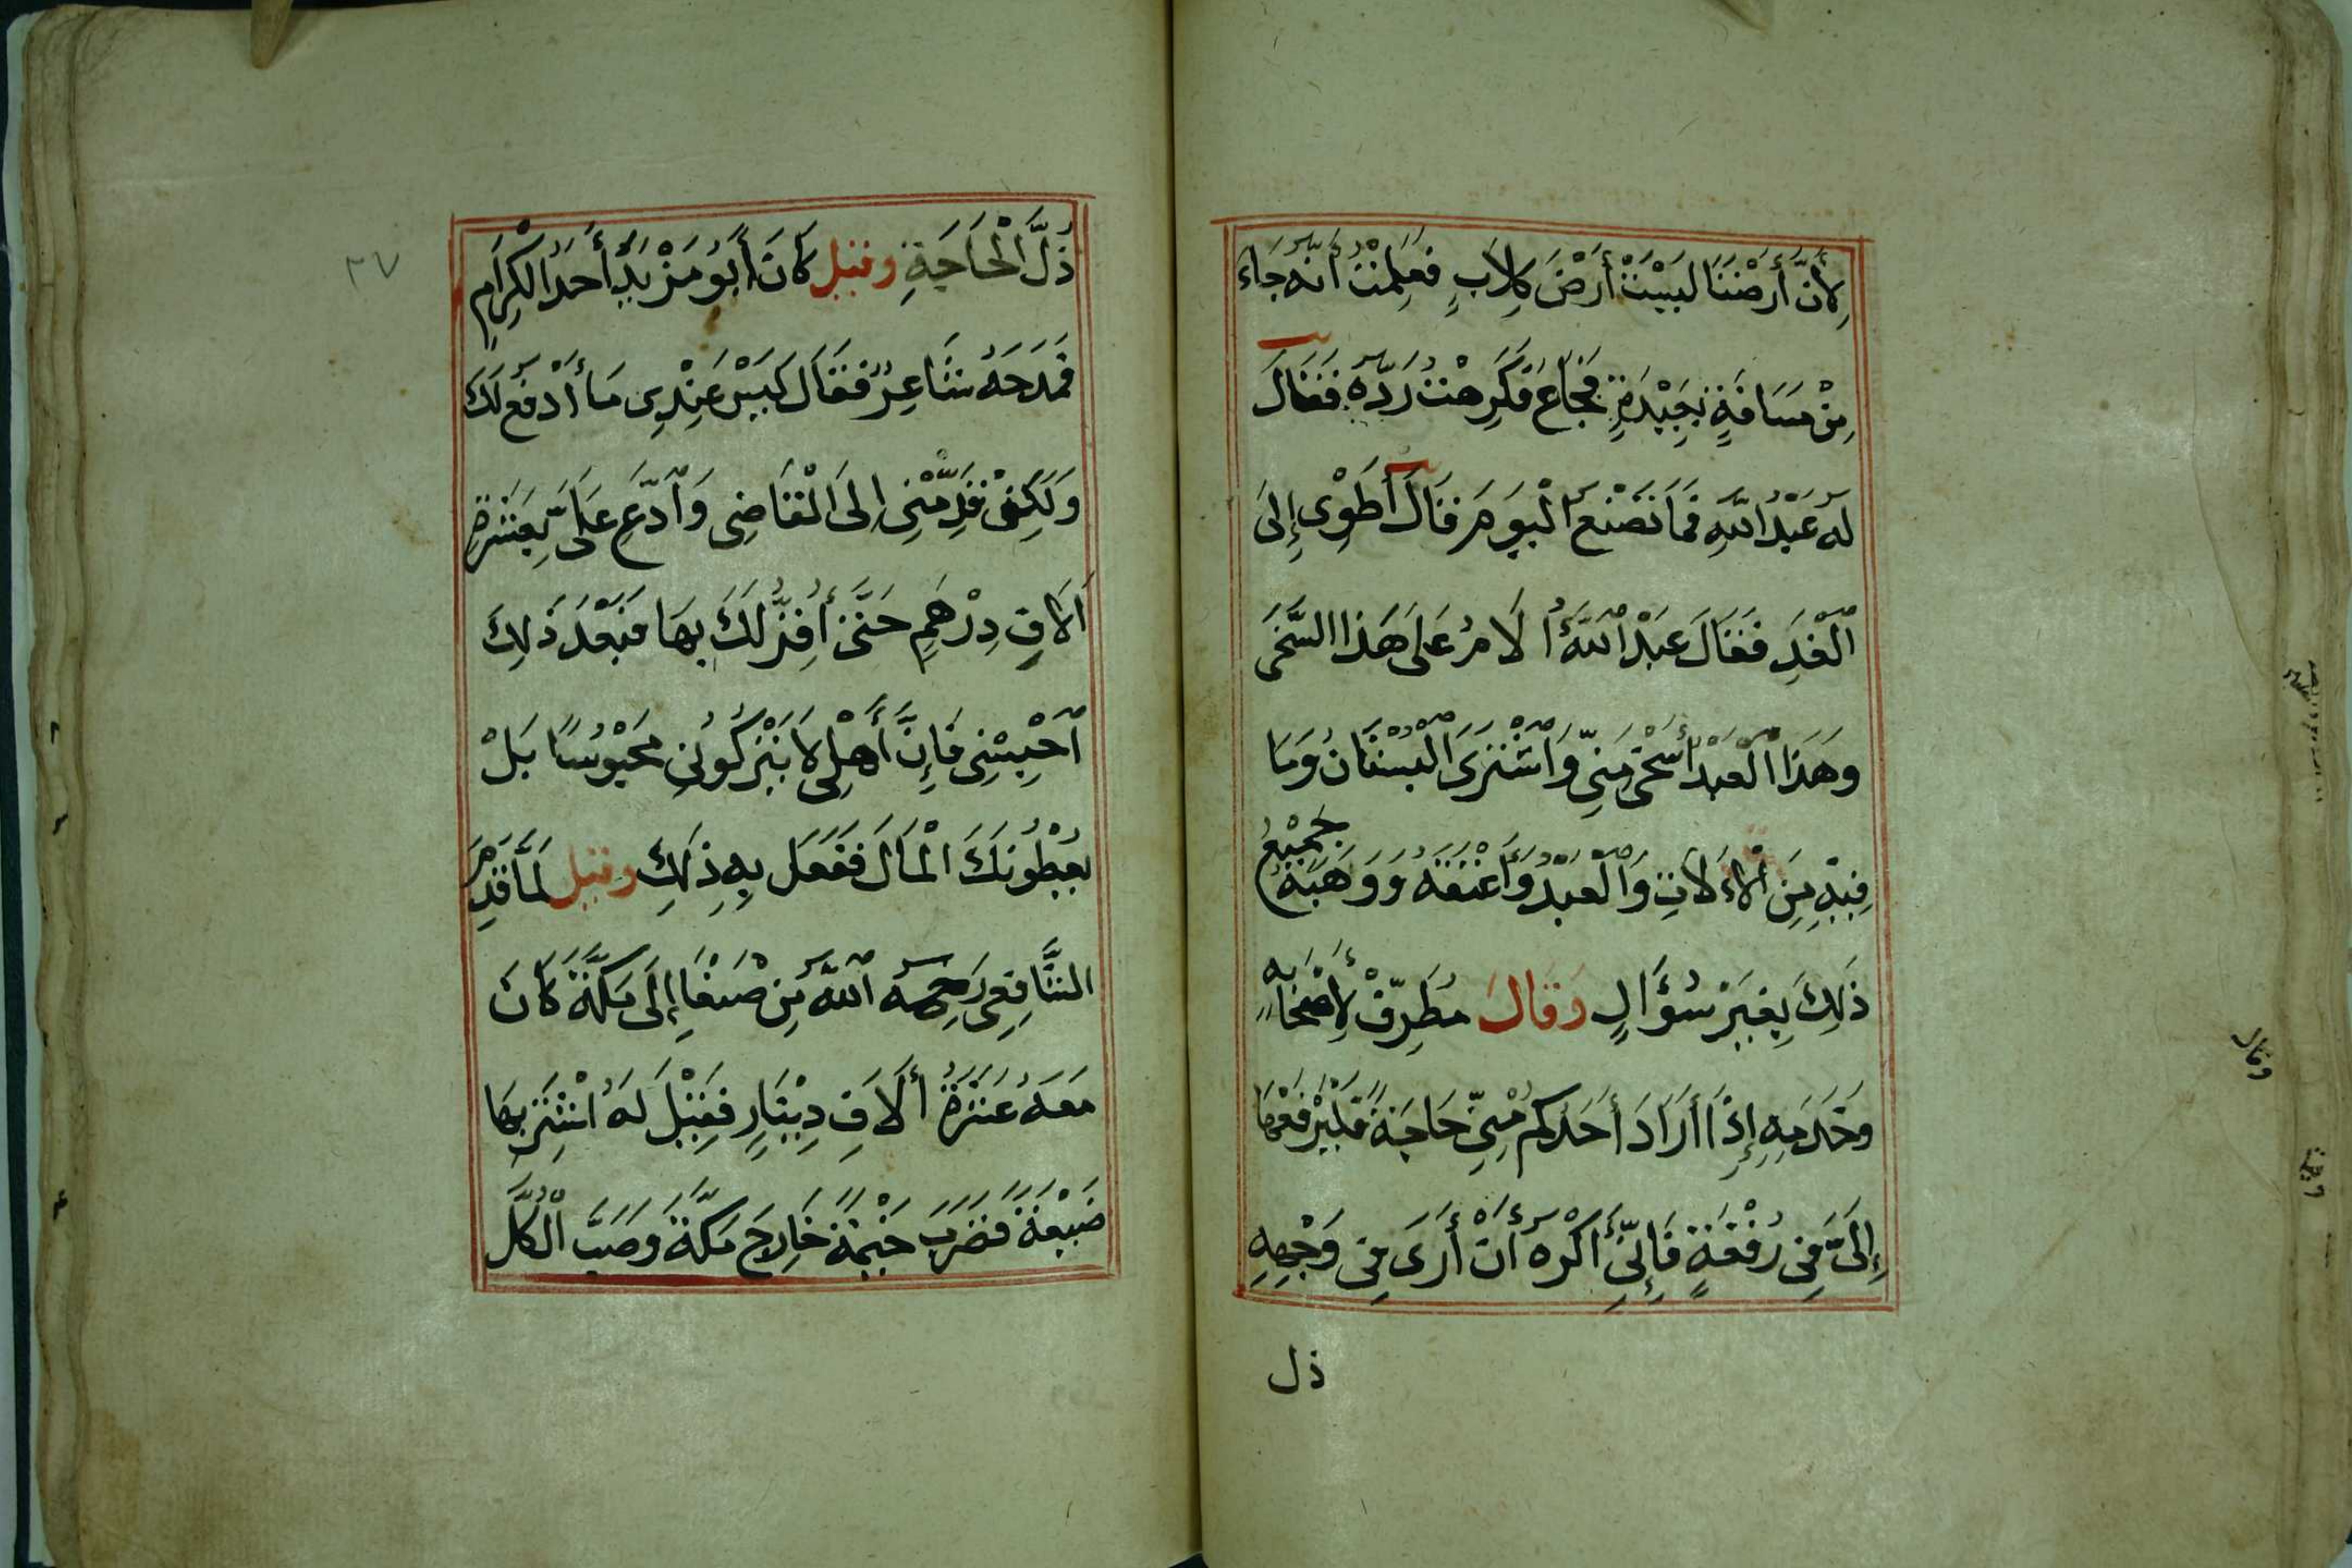 لِأَنَّ أَرْضَنَا لَيْسَتْ أَرْضَ كِلَابٍ فَعَلِمْتُ أَنَّهُ جَاءَ
مِنْ مَسَافَةٍ بَعِيْدَةٍ فَجَاعَ فَكَرِهْتُ رَدَّهُ فَقَالَ
لَهُ عَبْدُ اللّٰهِ فَمَا تَصْنَعُ الْيَوْمَ قَالَ أَطْوِى إِلَى
الْغَدِ فَقَالَ عَبْدُ اللّٰهِ أُلَامُ عَلَى هَذَا السَّخَى
وَهَذَا الْعَبْدُ أَسْخَى مِنِّى وَاشْتَرَى الْبُسْتَانَ وَمَا
فِيْهِ مِنَ الْاٰلَاتِ وَالْعَبْدَ وَأَعْتَقَهُ وَوَهَبَهُ جَمِيْعَ
ذَلِكَ بِغَيْرِ سُؤَالٍ وَقَالَ مُطَرِّفٌ لِأَصْحَابِهِ
وَخَدَمِهِ إِذَا أَرَادَ أَحَدُكُمْ مِنِّى حَاجَةً فَلْيَرْفَعْهَا
إِلَىَّ فِى رُقْعَةٍ فَإِنِّى أَكْرَهُ أَنْ أَرَى فِى وَجْهِهِ
ذل
وقال
٢٧
ذُلَّ الْحَاجَةِ وقيل كَانَ أَبُو مَزْيَدٍ أَحَدَ الْكِرَامِ
فَمَدَحَهُ شَاعِرٌ فَقَالَ لَيْسَ عِنْدِى مَا أَدْفَعُ لَكَ
وَلَكِنْ قَدِّمْنِى إِلَى الْقَاضِى وَادَّعِ عَلَىَّ بِعَشْرَةِ
اٰلَافِ دِرْهَمٍ حَتَّى أُقِرَّ لَكَ بِهَا فَبَعْدَ ذَلِكَ
احْبِسْنِى فَإِنَّ أَهْلِى لَا يَتْرُكُونِى مَحْبُوْسًا بَلْ
يُعْطُونَكَ الْمَالَ فَفَعَلَ بِهِ ذَلِكَ وقيل لَمَّا قَدِمَ
الشَّافِعِى رَحِمَهُ اللّٰهُ مِنْ صَنْعَا إِلَى مَكَّةَ كَانَ
مَعَهُ عَشْرَةُ اٰلَافِ دِيْنَارٍ فَقِيْلَ لَهُ اشْتَرِ بِهَا
ضَيْعَةً فَضَرَبَ خَيْمَةً خَارِجَ مَكَّةَ وَصَبَّ الْكُلَّ